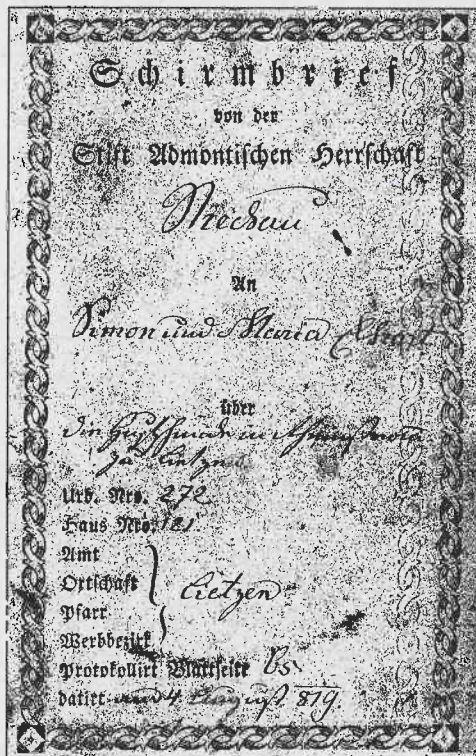 Schirmbrief
von der
Stift Admontischen Herrschaft
Strechau
An
Simon und Maria
über
die
zu Lietzen
Urb. Nro. 272
Haus Nro. 121
Amt
Ortschaft
Lietzen
Pfarr
Werbbezirk
Protokollirt Blattseite
datirt 4 August 819.